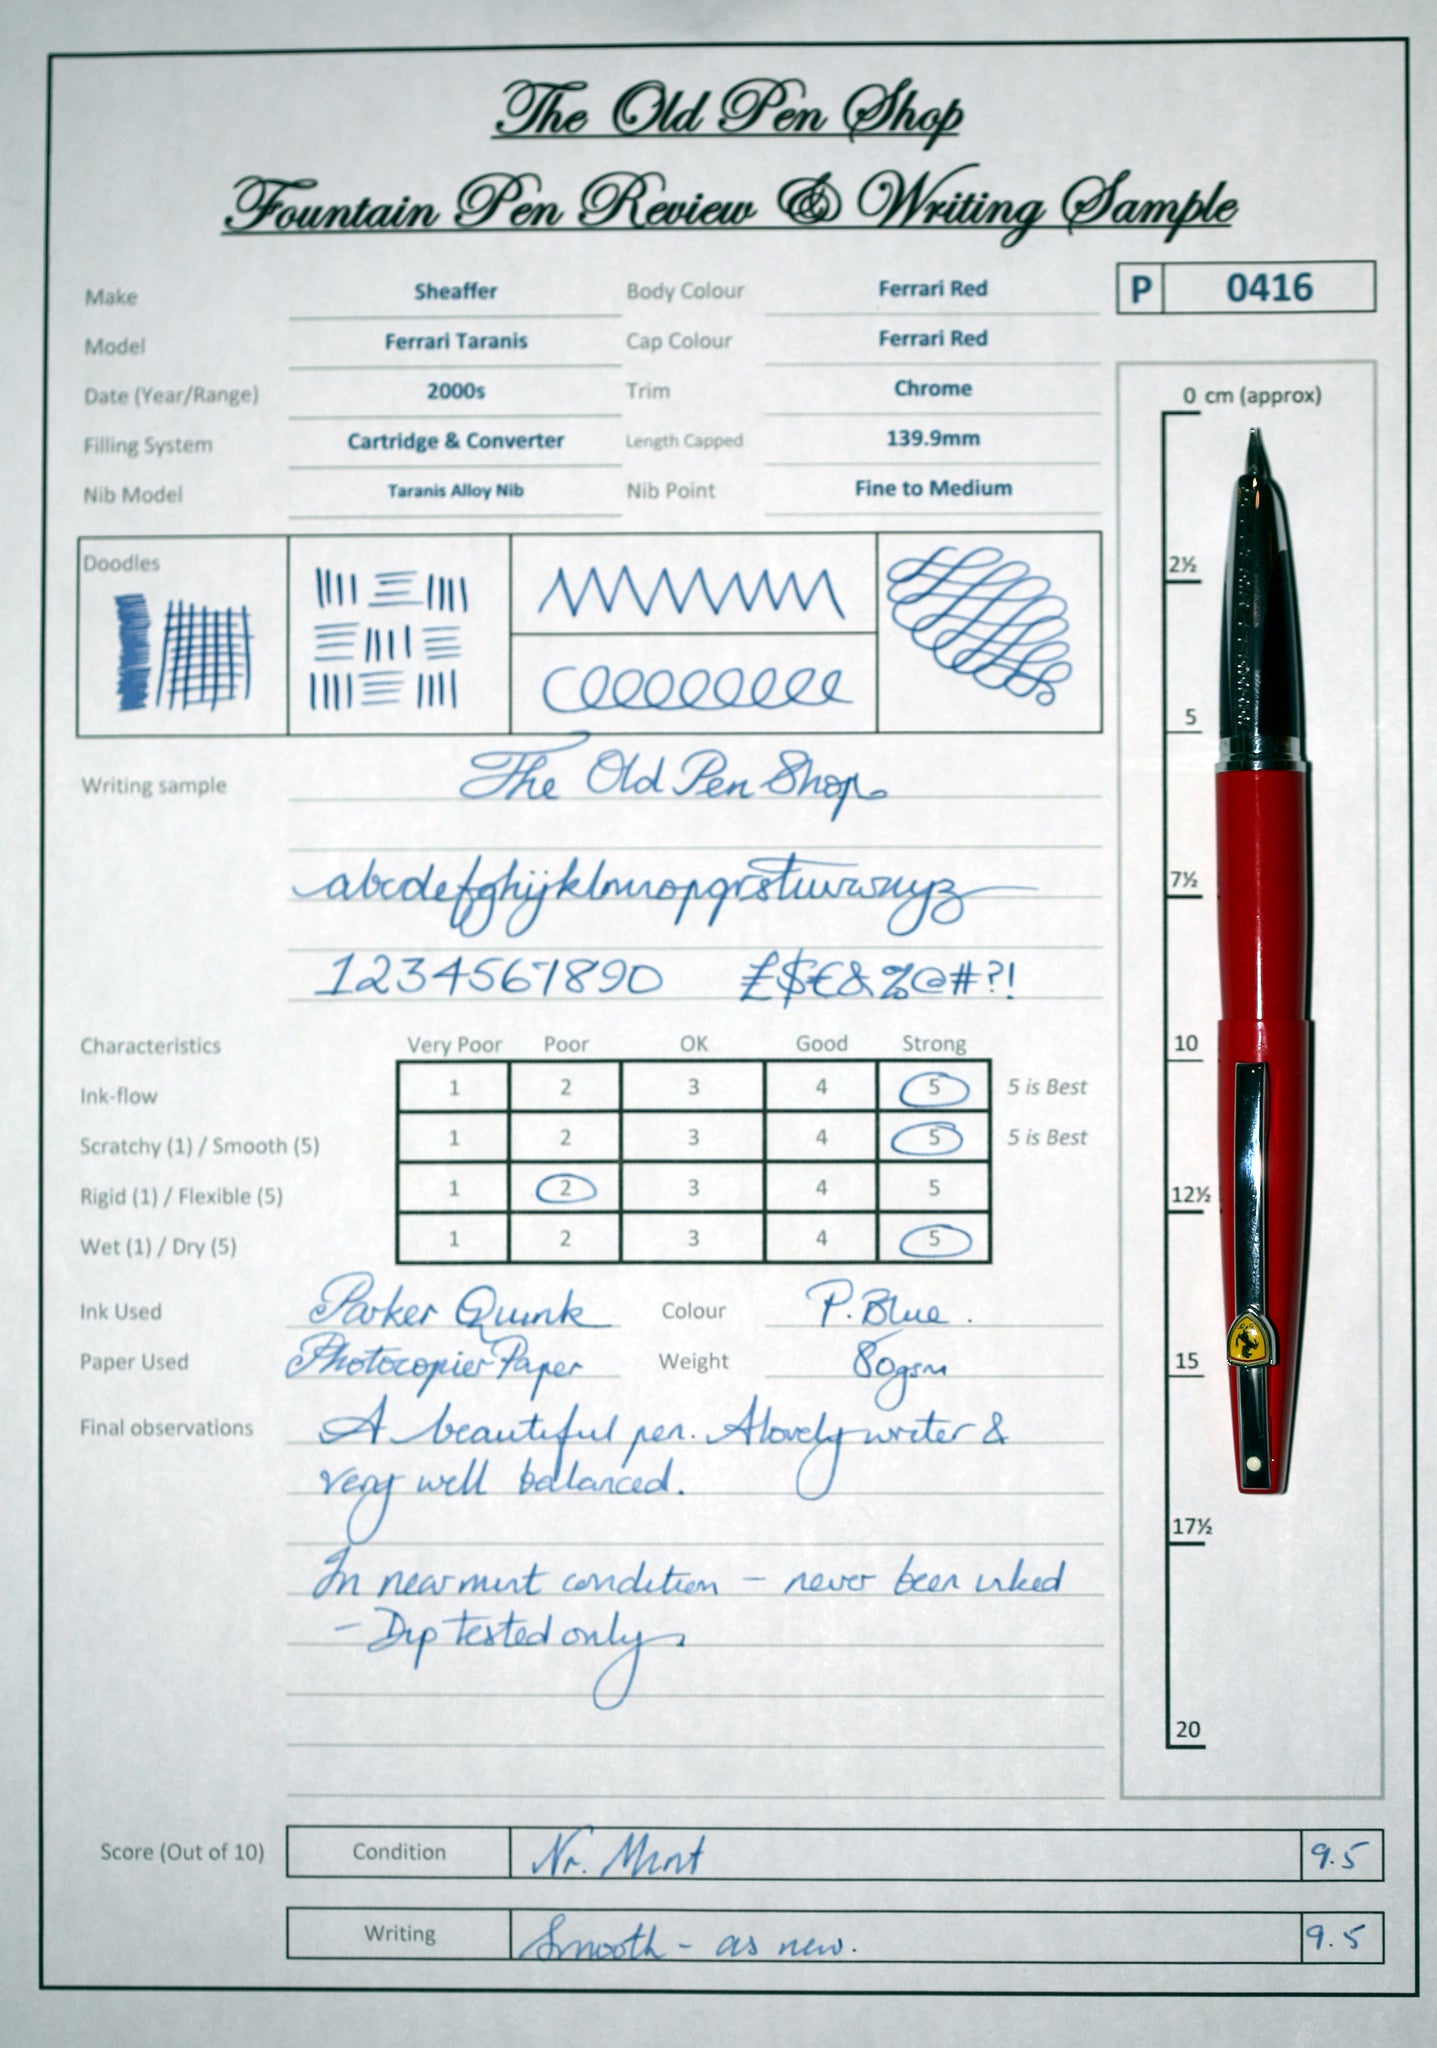 The Old Pen Shop
Fountain Pen Review & Writing Sample
Make Sheaffer Body Colour Ferrari Red P 0416
Model Ferrari Taranis Cap Colour Ferrari Red
Date (Year/Range) 2000s Trim Chrome
Filling System Cartridge & Converter Length Capped 139.9mm
Nib Model Taranis Alloy Nib Nib Point Fine to Medium
0 cm (approx)
2½
5
7½
10
12½
15
17½
20
Doodles
Writing sample The Old Pen Shop
abcdefghijklmnopqrstuvwxyz
1234567890 £$€&%@#?!
Characteristics Very Poor Poor OK Good Strong
Ink-flow 1 2 3 4 5 5 is Best
Scratchy (1) / Smooth (5) 1 2 3 4 5 5 is Best
Rigid (1) / Flexible (5) 1 2 3 4 5
Wet (1) / Dry (5) 1 2 3 4 5
Ink Used Parker Quink Colour P. Blue.
Paper Used Photocopier Paper Weight 80gsm
Final observations A beautiful pen. A lovely writer &
very well balanced.
In near mint condition – never been inked
– Dip tested only.
Score (Out of 10) Condition Nr. Mint 9.5
Writing Smooth - as new. 9.5